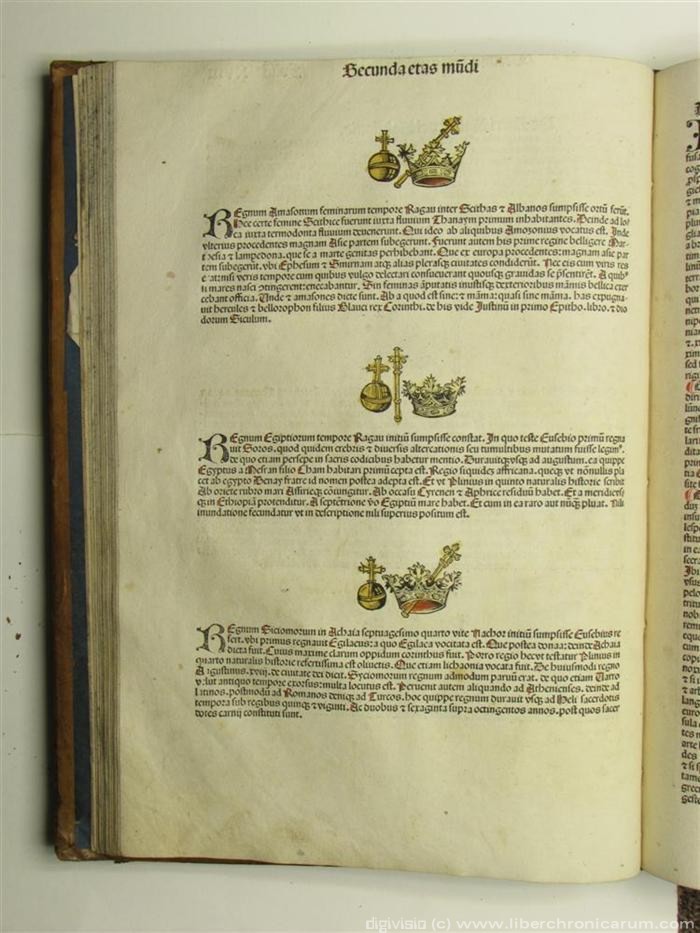 Secunda etas mũdi
REgnum Amasonum feminarum tempore Ragau inter Scithas ⁊ Albanos sumpsisse ortũ ferũt.
Hee certe femine Scithice fuerunt iuxta fluuium Thanaym primum inhabitantes. Deinde ad lo
ca iuxta termodonta fluuium deuenerunt. Qui ideo ab aliquibus Amozonius vocatus est. Inde
vlterius procedentes magnam Asie partem subegerunt. Fuerunt autem his prime regine belligere Mar
tesia ⁊ lampedona. que se a marte genitas perhibebant. Que ex europa procedentes: magnam asie par
tem subegerũt. vbi Ephesum ⁊ Smirnam atqꝫ alias plerasqꝫ ciuitates condiderũt. Nec eis cum viris
erat: nisi veris tempore cum quibus vulgo delectari consueuerant quousqꝫ grauidas se
si mares nasci: enecabantur. Sin feminas dexterioribus bellica exer
cebant officia. Unde ⁊ amasones dicte sunt. Ab a quod est sine: ⁊ mãma: quasi sine mãma. has expugna
uit hercules ⁊ bellorophon filius Glauci rex Corinthi. de his vide Justinũ in primo Epitho. libro. ⁊ dio
dorum Siculum.
REgnum Egiptiorum tempore Ragau initiũ sumpsisse constat. In quo teste Eusebio primũ regna
uit Soros. quod quidem crebris ⁊ diuersis altercationis seu tumultibus mutatum fuisse
de quo etiam persepe in sacris codicibus habetur mentio. Durauitqꝫ vsqꝫ ad augustum. ea quippe
Egyptus a Mesran filio Cham habitari primũ cepta est. Regio siquidẽ affricana. queqꝫ vt nõnullis pla
cet ab egypto Denay fratre id nomen postea adepta est. Et vt Plinius in quinto naturalis historie scribit
Ab oriẽte rubro mari Assirieqꝫ cõiungitur. Ab occasu Cyrenen ⁊ Aphrice residuũ habet. Et a meridie vs
qꝫ in Ethiopiã protenditur. A septẽtrione vo Egiptiũ mare habet. Et cum in ea raro aut nũqꝫ pluat. Nili
inundatione fecundatur vt in descriptione nili superius positum est.
REgnum Siciomorum in Achaia septuagesimo quarto vite Nachor initiũ sumpsisse Eusebius re
fert. vbi primus regnauit Egilaeus: a quo Egilaea vocitata est. Que postea bonaa: deinde Achaia
dicta fuit. Cuius maxime clarum oppidum corinthus fuit. Porro regio hec vt testatur Plinius in
quarto naturalis historie refertissima est oliuetis. Que etiam lichaonia vocata fuit. De huiusmodi regno
Augustinus. xviij. de ciuitate dei dicit. Syciomorum regnum admodum paruũ erat. de quo etiam Uarro
velut antiquo tempore exorsus: multa locutus est. Peruenit autem aliquando ad Athenienses. deinde ad
latinos. postmodũ ad Romanos deniqꝫ ad Turcos. hoc quippe regnum durauit vsqꝫ ad Heli sacerdotis
tempora sub regibus quinqꝫ ⁊ viginti. Ac duobus ⁊ sexaginta supra octingentos annos. post quos sacer
dotes carnij constituti sunt.
digivisio (c) www.liberchronicarum.com